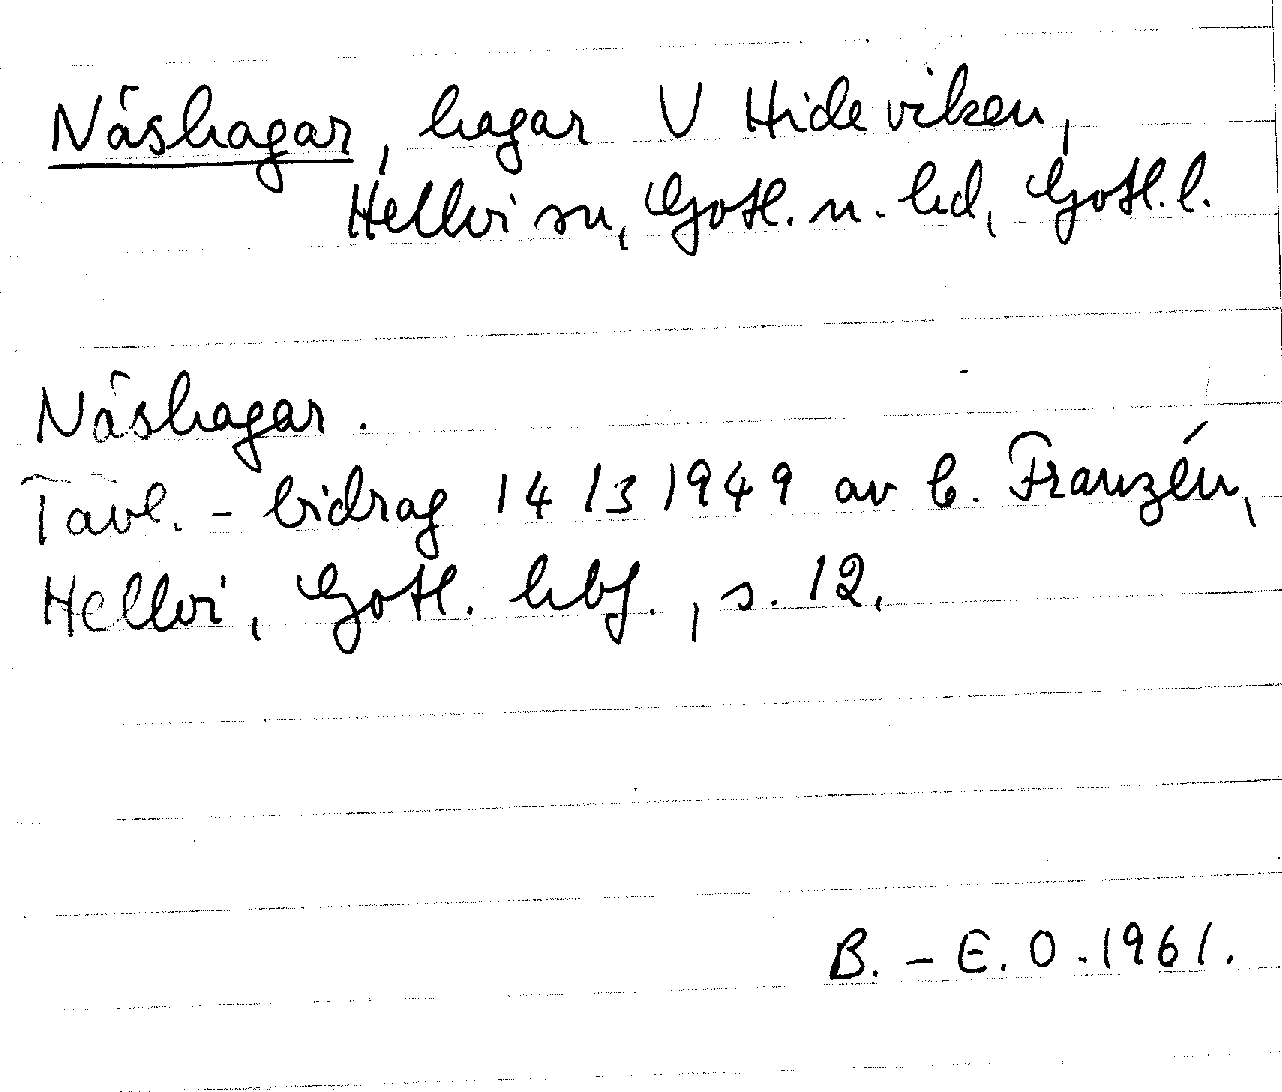 Näshagar, hagar V Hideviken,
Hellvi sn, Gotl. n. hd, Gotl. l.
Näshagar.
Tävl. - bidrag 14/3 1949 av C. Franzén,
Hellvi, Gotl. hbf., s. 12.
B. - E. O. 1961.